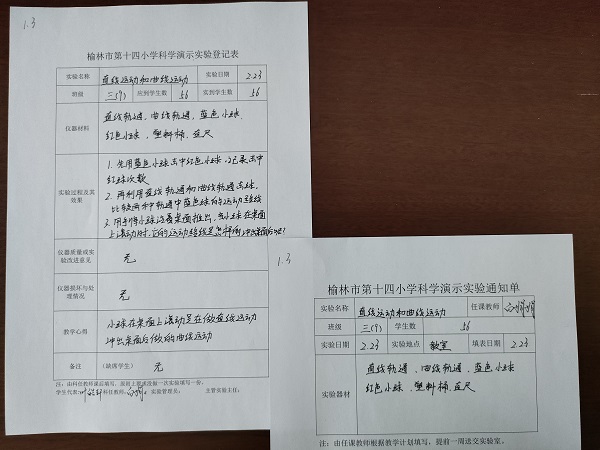 1.3
榆林市第十四小学科学演示实验登记表
实验名称 直线运动和曲线运动 实验日期 2.23
班级 三(7) 应到学生数 56 实到学生数 56
仪器材料 直线轨道、曲线轨道、蓝色小球、
红色小球、塑料桶、直尺
实验过程及其效果
1.先用蓝色小球击中红色小球,记录击中
红球次数
2.再利用直线轨道和曲线轨道击球,
比较两种轨道中蓝色球的运动路线
3.用手将小球沿着桌面推出,当小球在桌面
上滚动时,它的运动路线是怎样的,冲出桌面后呢?
仪器质量或实验改进意见 无
仪器损坏与处理情况 无
教学心得 小球在桌面上滚动是在做直线运动
冲出桌面后做的曲线运动
备注 (缺席学生) 无
注:由科任教师课后填写,
学生代表: 科任教师: 实验管理员: 主管实验主任:
1.3
榆林市第十四小学科学演示实验通知单
实验名称 直线运动和曲线运动 任课教师
班级 三(7) 学生数 56
实验日期 2.23 实验地点 教室 填表日期 2.23
实验器材 直线轨道、曲线轨道、蓝色小球
红色小球、塑料桶、直尺
注:由任课教师根据教学计划填写,提前一周送交实验室。